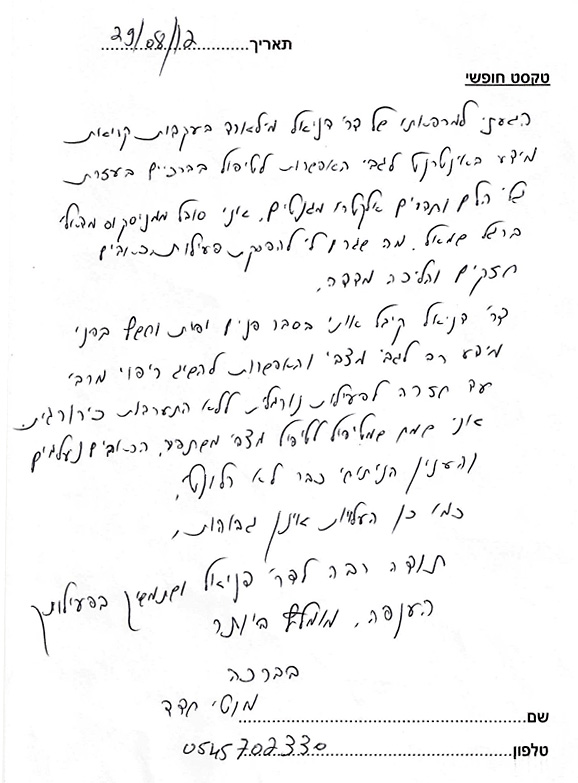 תאריך 29/08/12
טקסט חופשי
הגעתי למרפאתו של דר' דניאל מילארד בעקבות קריאת
מידע באינטרנט לגבי האפשרות לטיפול בברכיים בעזרת
גלי הלם ותדרים אלקטרו מגנטים, אני סובל ממניסקוס מדיאלי
ברגל שמאל. מה שגרם לי להפסקת פעילות, כאבים
חזקים והליכה מדדה.
דר' דניאל קיבל אותי בסבר פנים יפות וחשף בפני
מידע רב לגבי מצבי והאפשרות להשיג ריפוי מרבי
עד חזרה לפעילות נורמלית ללא התערבות כירורגית.
אני שמח שמטיפול לטיפול מצבי משתפר, הכאבים נעלמים
והענין הניתוחי כבר לא רלוונטי,
כמו כן העלויות אינן גבוהות,
תודה רבה לדר' דניאל ושתמשיך בפעילותך
הענפה, מומלץ ביותר
בברכה
מוטי חדד
שם
טלפון 0545702330